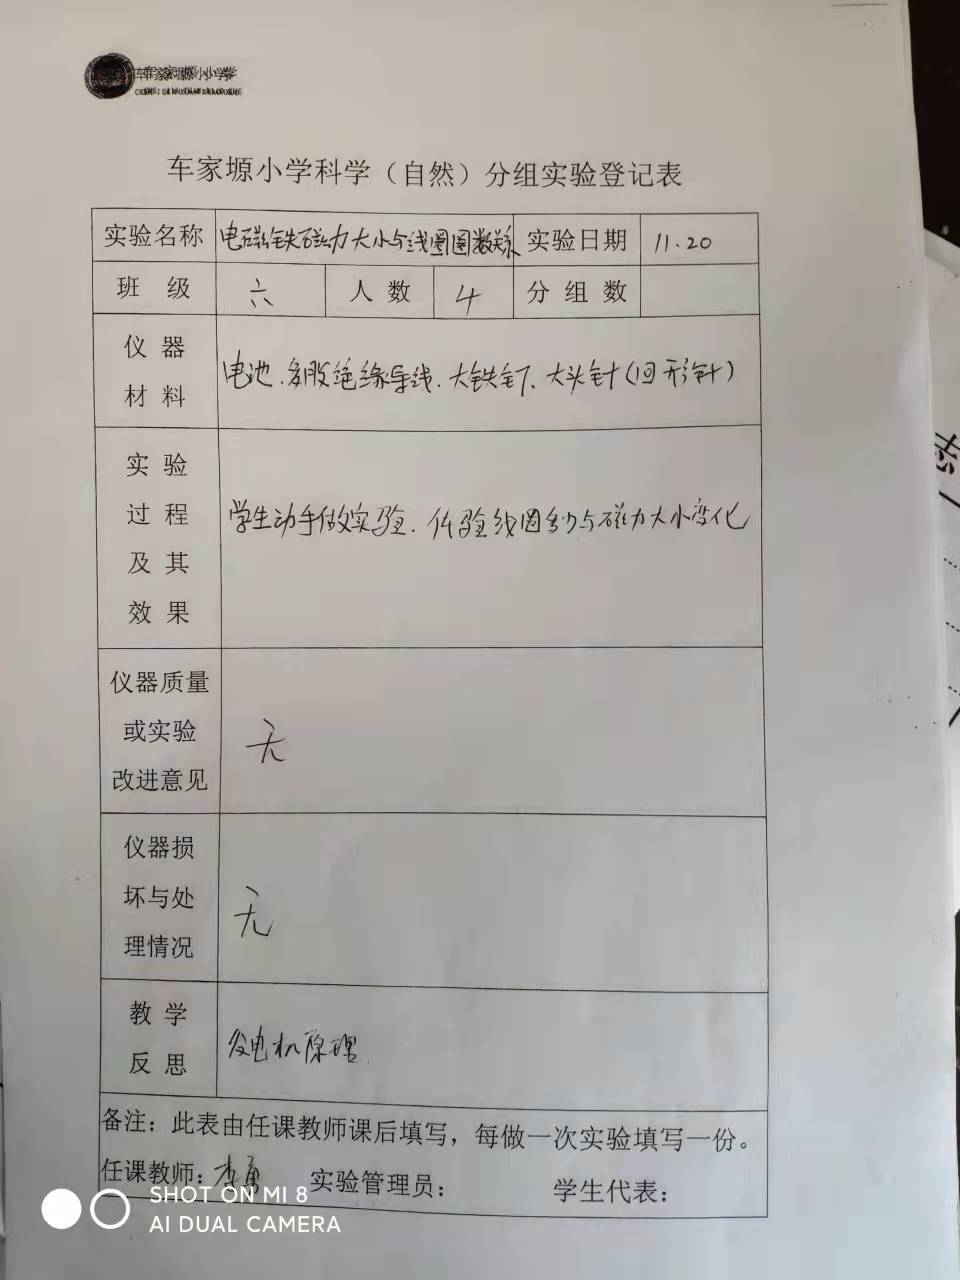 车家塬小学
车家塬小学科学（自然）分组实验登记表
实验名称 电磁铁磁力大小与线圈圈数关系 实验日期 11.20
班 级 六 人 数 4 分 组 数
仪 器
材 料
电池、多股绝缘导线、大铁钉、大头针(回形针)
实 验
过 程
及 其
效 果
学生动手做实验、体验线圈多少与磁力大小变化
仪器质量
或实验
改进意见
无
仪器损
坏与处
理情况
无
教 学
反 思
发电机原理
备注：此表由任课教师课后填写，每做一次实验填写一份。
任课教师： 实验管理员： 学生代表：
SHOT ON MI 8
AI DUAL CAMERA